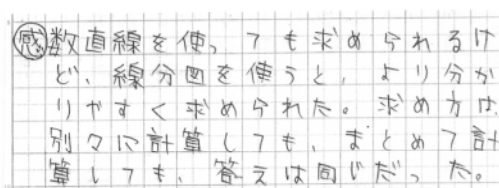 感数直線を使っても求められるけ
ど、線分図を使うと、より分か
りやすく求められた。求め方は
別々に計算しても、まとめて計
算しても、答えは同じだった。